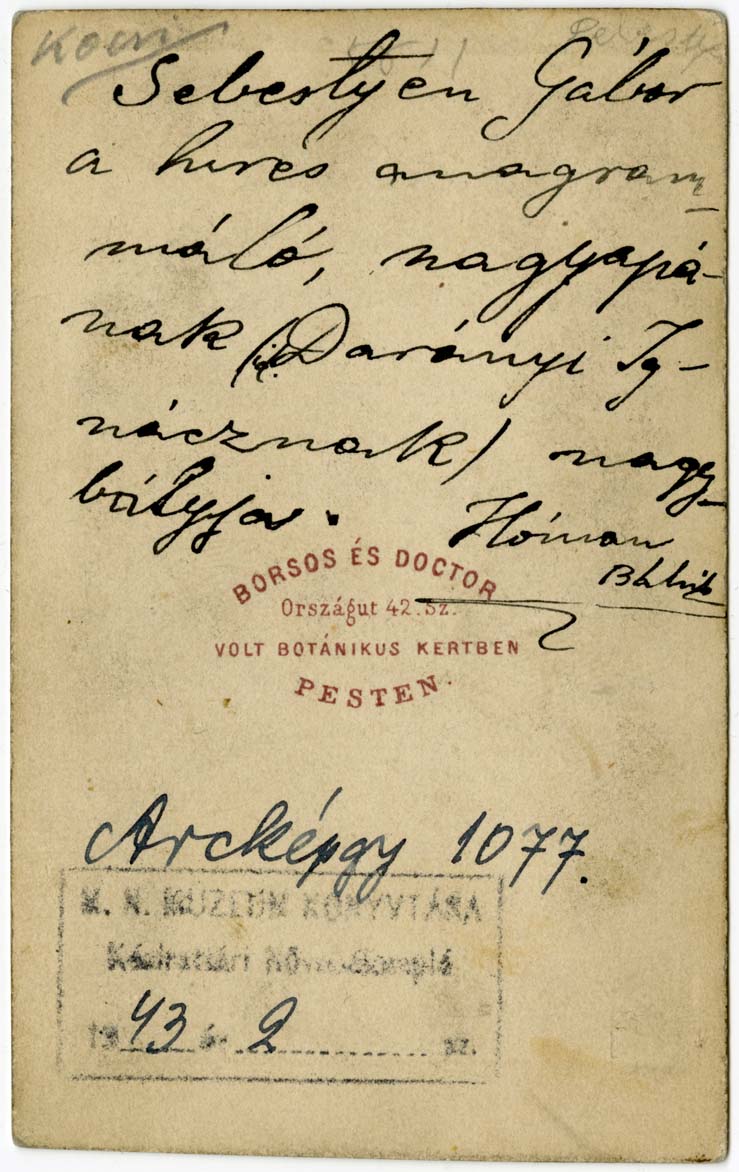 Sebestyén Gábor
a hires anagram-
máló, nagyapá-
nak (id. Darányi Ig-
nácznak) nagy-
bátyja. Hóman
Bálint
BORSOS ÉS DOCTOR
Országut 42. Sz.
VOLT BOTÁNIKUS KERTBEN
PESTEN.
Arcképgy 1077.
M. N. MÚZEUM KÖNYVTÁRA
Kézirattári Növedéknapló
1943 é. 2 sz.